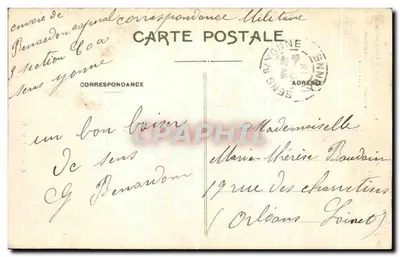 envoie de
Benardon caporal correspondance Militaire
section
sens yonne
CARTE POSTALE
SENS s/ YONNE
YONNE
CORRESPONDANCE
ADRESSE
un bon baiser
de sens
G Benardon
Mademoiselle
Marie-Thérèse Baudain
19 rue des charretiers
(Orléans Loiret)
Cparama